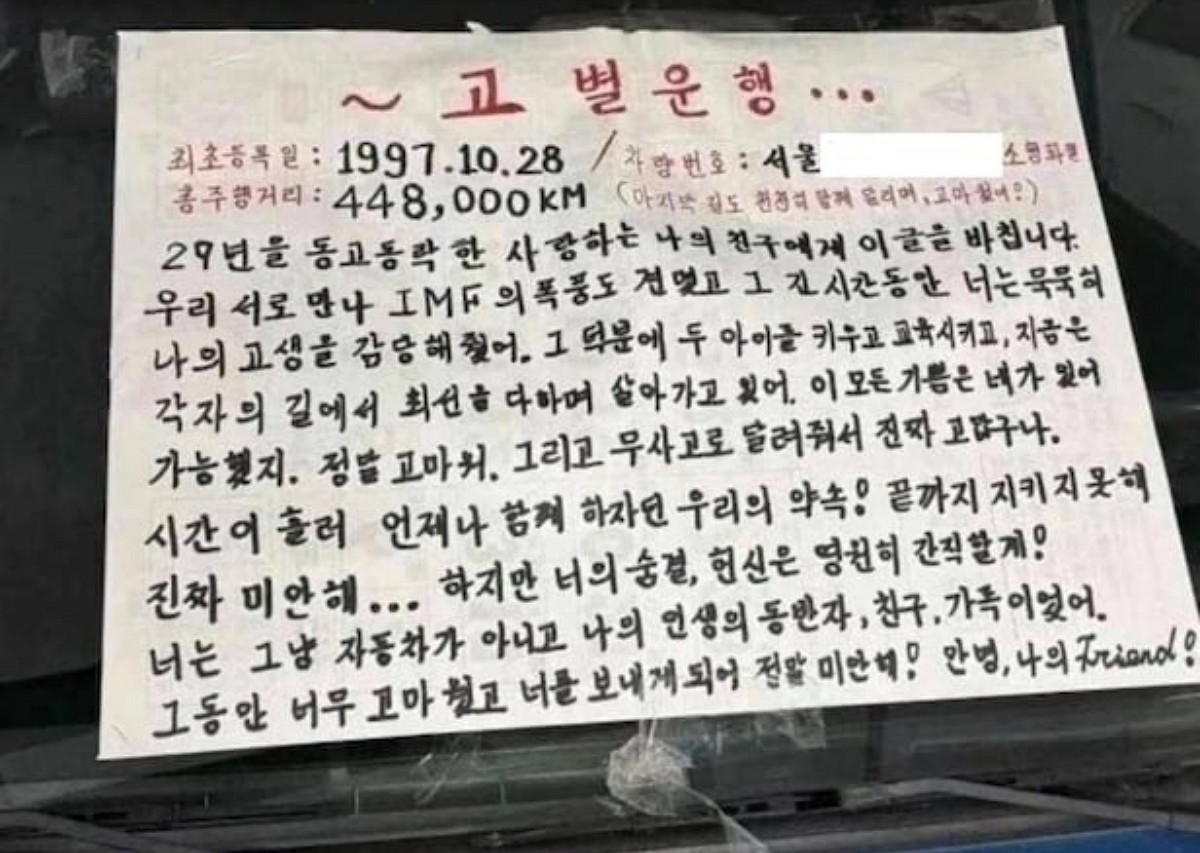 ~ 고 별 운 행 ...
최초등록일 : 1997.10.28 / 차량번호 : 서울 소형화물
총주행거리 : 448,000KM (마지막 길도 안전하게 함께 달리며, 고마웠어!)
29년을 동고동락 한 사랑하는 나의 친구에게 이 글을 바칩니다.
우리 서로 만나 IMF의 폭풍도 견뎠고 그 긴 시간동안 너는 묵묵히
나의 고생을 감당해줬어. 그 덕분에 두 아이를 키우고 교육시키고, 지금은
각자의 길에서 최선을 다하며 살아가고 있어. 이 모든 기쁨은 네가 있어
가능했지. 정말 고마워. 그리고 무사고로 달려줘서 진짜 고맙구나.
시간이 흘러 언제나 함께 하자던 우리의 약속! 끝까지 지키지못해
진짜 미안해... 하지만 너의 숨결, 헌신은 영원히 간직할게!
너는 그냥 자동차가 아니고 나의 인생의 동반자, 친구, 가족이었어.
그동안 너무 고마웠고 너를 보내게되어 정말 미안해! 안녕, 나의 Friend!